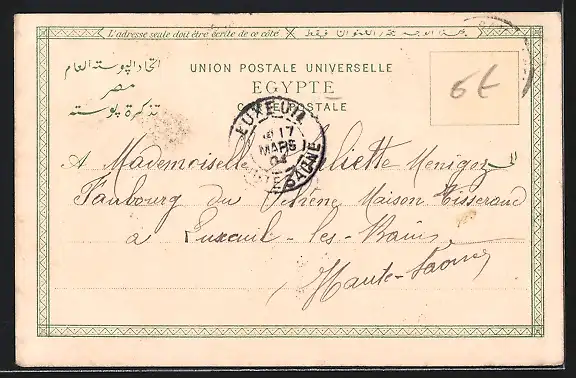 L'adresse seule doit être écrite de ce côté
اتحاد البوسته العام
مصر
تذكرة بوسته
UNION POSTALE UNIVERSELLE
EGYPTE
POSTALE
6E
LUXEUIL
17
MARS
04
SAÔNE
A Mademoiselle Juliette Menigoz
Faubourg du Chêne Maison Tisserand
a Luxeuil-les-Bains
Haute-Saône